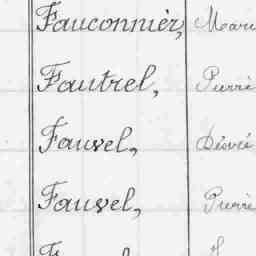 Fauconnier, Mari
Fautrel, Pierre
Fauvel, Désiré
Fauvel, Pierre